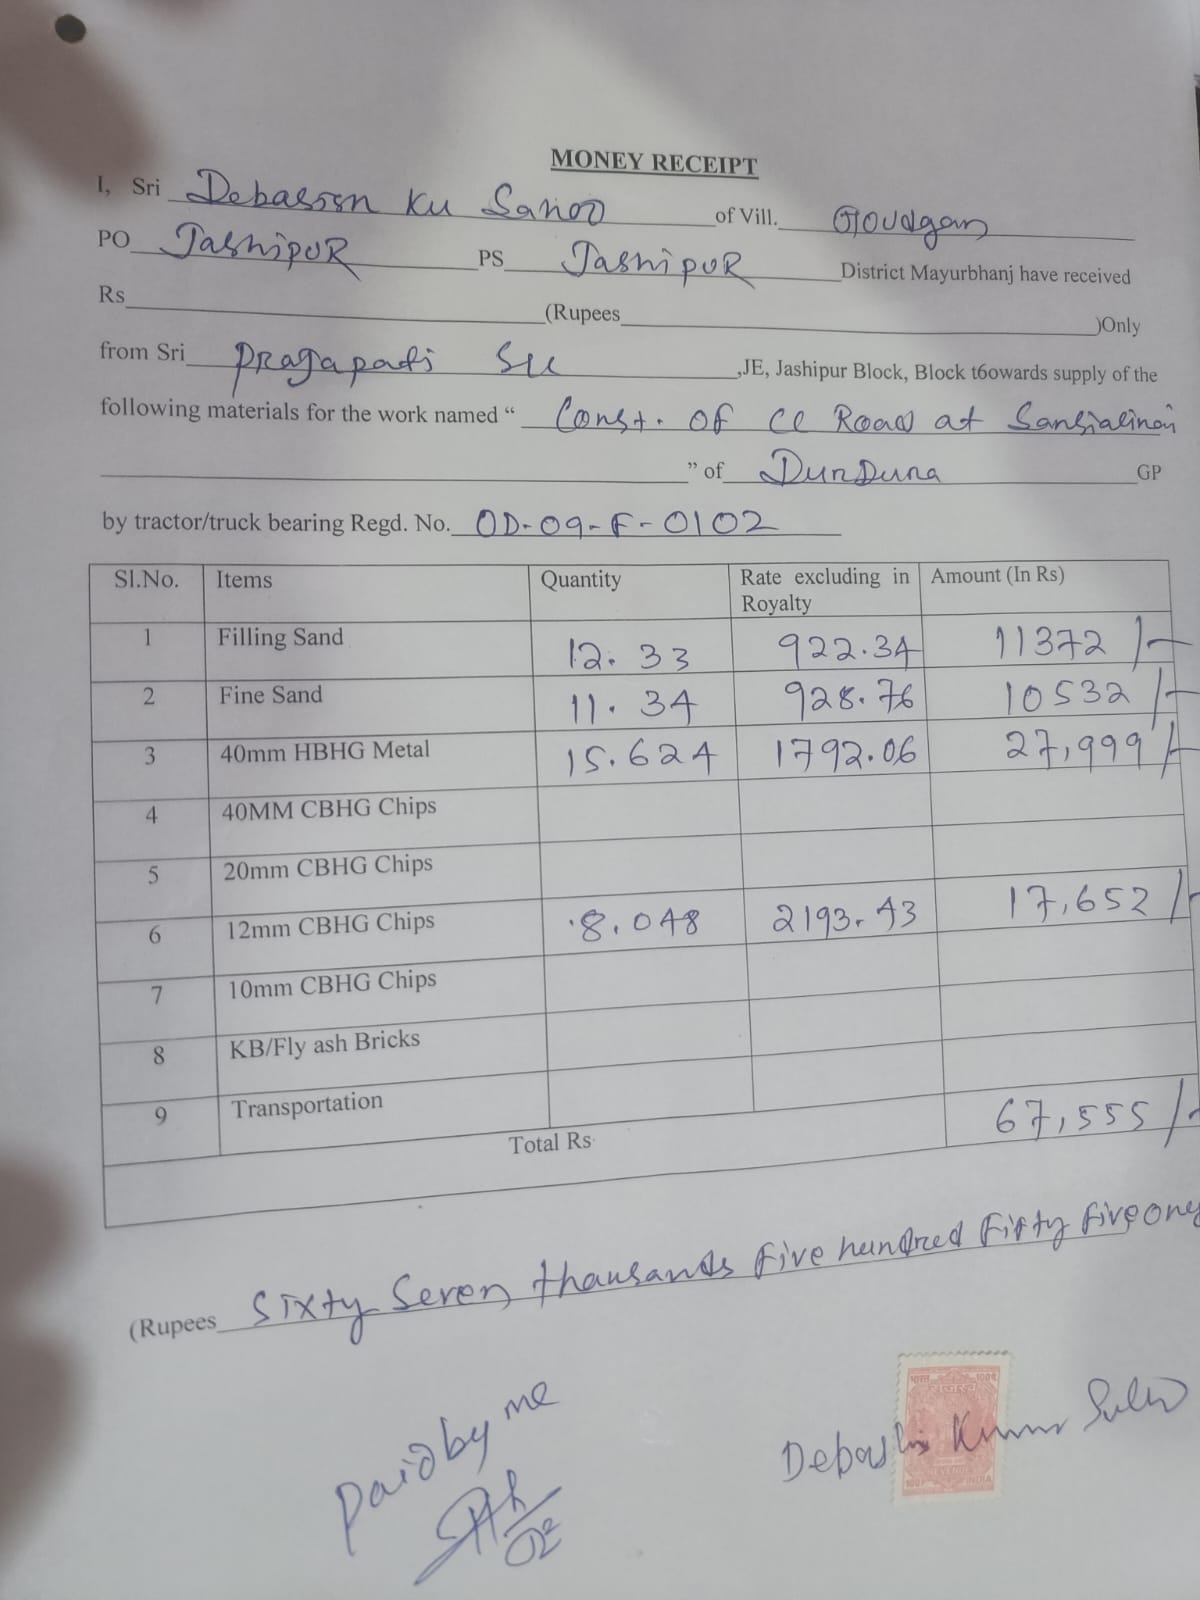 MONEY RECEIPT
I, Sri Debasisn Ku Sahoo of Vill. Goudgan
PO Jashipur PS Jashipur District Mayurbhanj have received
Rs (Rupees )Only
from Sri Pragapati Su ,JE, Jashipur Block, Block t6owards supply of the
following materials for the work named “ Const. of CC Road at
” of Durdura GP
by tractor/truck bearing Regd. No. OD-09-F-0102
Sl.No. Items Quantity Rate excluding in Royalty Amount (In Rs)
1 Filling Sand 12.33 922.34 11372/-
2 Fine Sand 11.34 928.76 10532/-
3 40mm HBHG Metal 15.624 1792.06 27,999/-
4 40MM CBHG Chips
5 20mm CBHG Chips
6 12mm CBHG Chips 8.048 2193.43 17,652/-
7 10mm CBHG Chips
8 KB/Fly ash Bricks
9 Transportation
Total Rs 67,555/-
(Rupees Sixty Seven thousands five hundred fifty five only
paid by me
Debashis Kumar